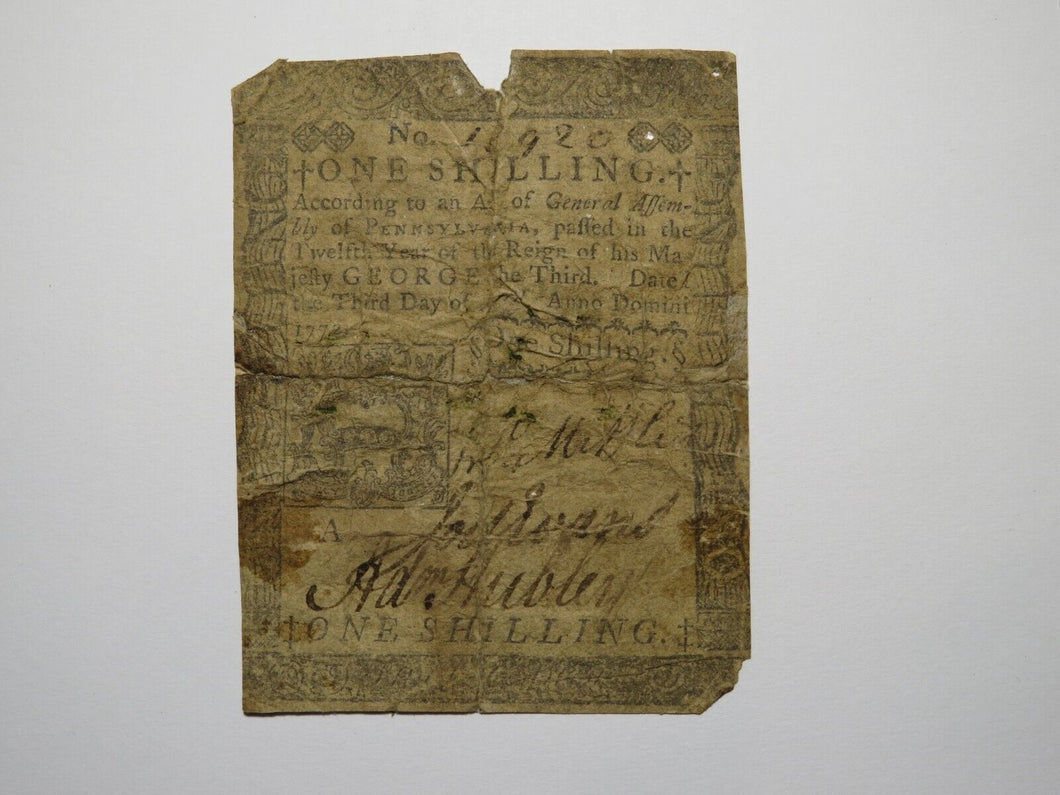 No. 1 920
†ONE SHILLING.†
According to an A of General Aſſem-
bly of PENNSYLVANIA, paſſed in the
Twelfth Year of th Reign of his Ma-
jeſty GEORGE he Third. Dated
the Third Day of Anno Domini
177
One Shilling.
A
Evans
Adm Hubley
†ONE SHILLING.†